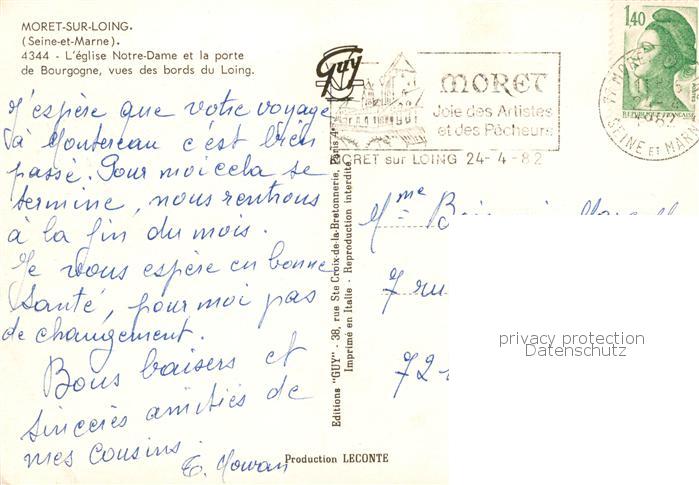 MORET-SUR-LOING.
(Seine-et-Marne).
4344 - L'église Notre-Dame et la porte
de Bourgogne, vues des bords du Loing.
J'espère que votre voyage
à Montereau c'est bien
passé. Pour moi cela se
termine, nous rentrons
à la fin du mois.
Je vous espère en bonne
santé, pour moi pas
de changement.
Bons baisers et
sincères amitiés de
mes cousins.
Guy
MORET
Joie des Artistes
et des Pêcheurs
MORET sur LOING 24-4-82
1,40
REPUBLIQUE FRANÇAISE
SEINE ET MARNE
Editions "GUY" - 38, rue Ste Croix-de-la-Bretonnerie, Paris 4e
Imprimé en Italie - Reproduction interdite
Mme
7 rue
72
privacy protection
Datenschutz
Production LECONTE